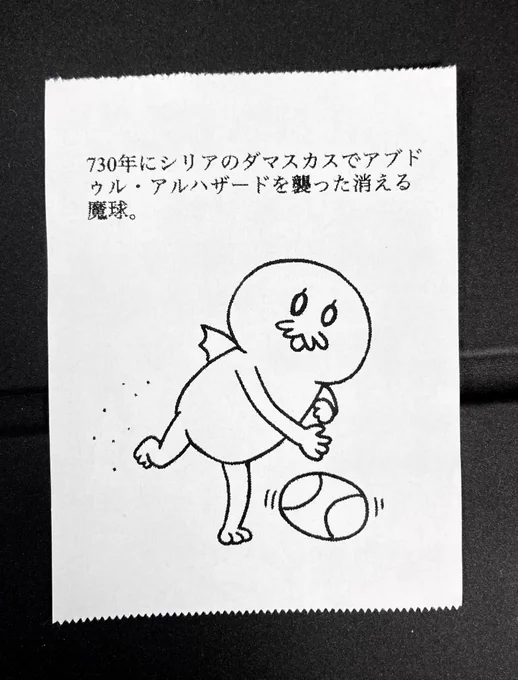 730年にシリアのダマスカスでアブド
ゥル・アルハザードを襲った消える
魔球。